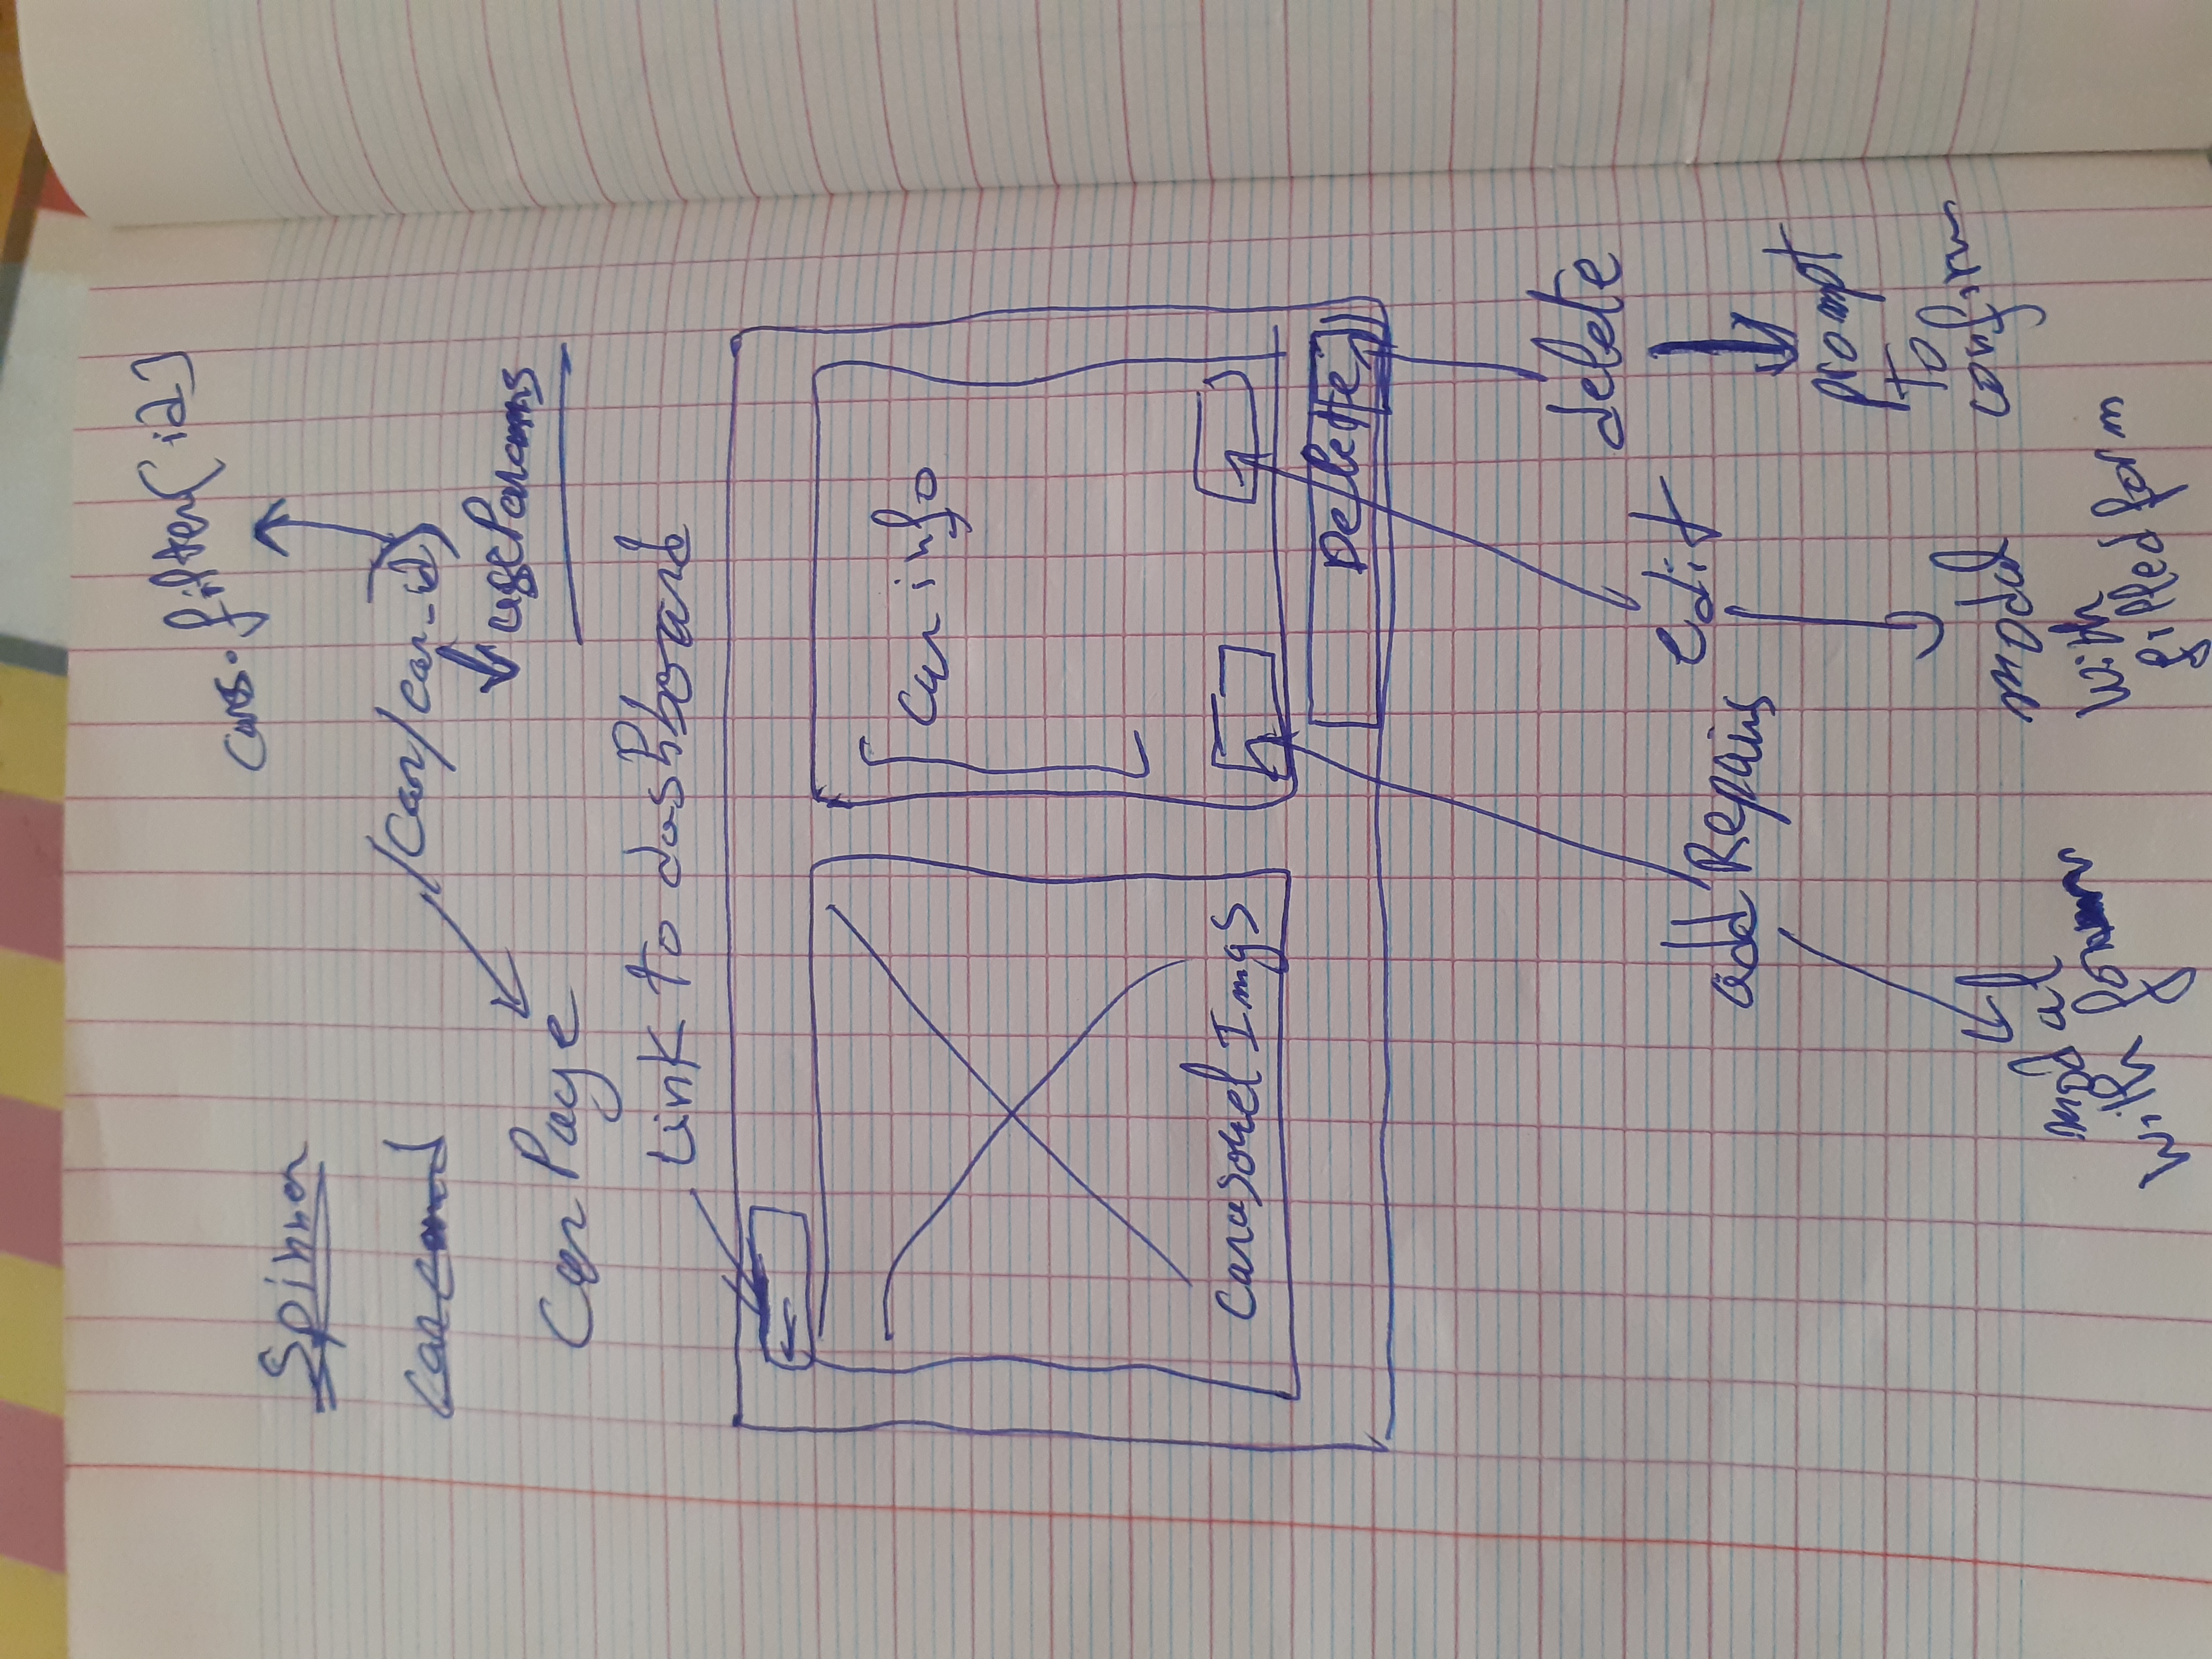 cars.filter(id)
Spinner
Car card
/Car/car_id)
useParams
Car Page
Link to dashboard
←
Car info
Carasouel Imgs
Delete
delete
edit
add Repairs
prompt
to
confirm
modal
with form
modal
with
filled form